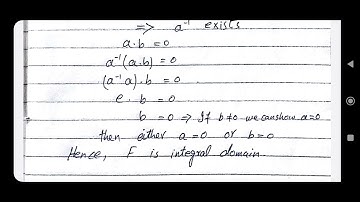 => a⁻¹ exists
a.b = 0
a⁻¹(a.b) = 0
(a⁻¹a).b = 0
e . b = 0
b = 0 => If b ≠ 0 we can show a=0
then either a=0 or b=0
Hence, F is integral domain